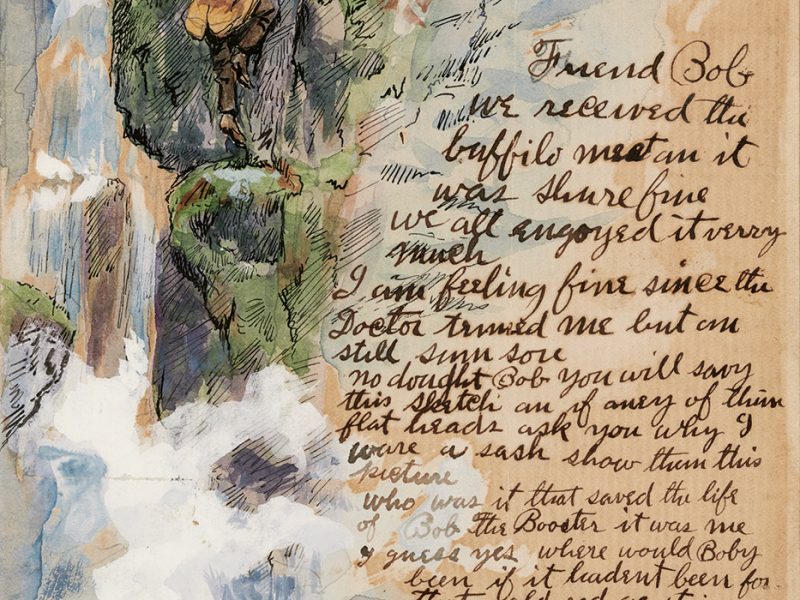 Friend Bob
we received the
buffilo meat an it
was shure fine
we all engoyed it verry
much
I am feeling fine since the
Doctor trimed me but am
still sum sore
no dought Bob you will savy
this sketch an if aney of them
flat heads ask you why I
ware a sash show them this
picture
who was it that saved the life
of Bob the Booster it was me
I guess yes where would Boby
been if it hadent been for
that old red